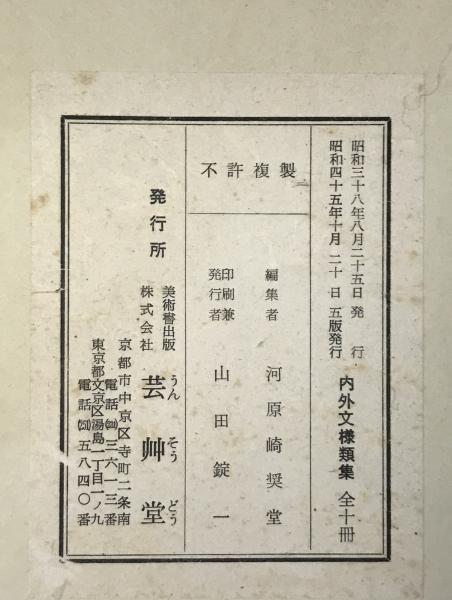 昭和三十八年八月二十五日 発行
昭和四十五年十月二十日 五版発行
内外文様類集 全十冊
不許複製
編集者 河原崎奨堂
印刷兼
発行者 山田錠一
発行所
美術書出版
株式会社
芸艸堂
うんそうどう
京都市中京区寺町二条南
電話 三六一三番
東京都文京区湯島一丁目一ノ九
電話 五八四〇番